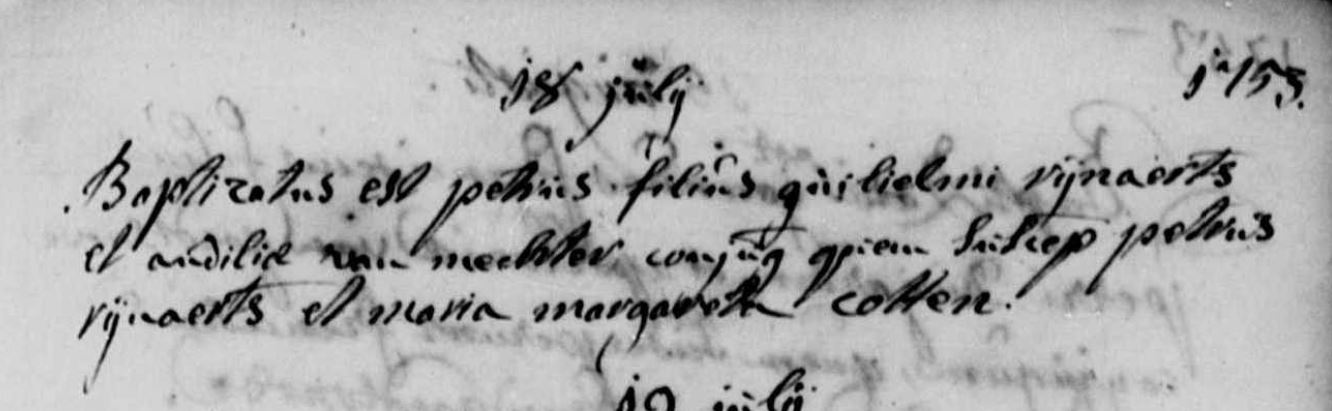 18 julij 1753.
Baptizatus est petrus filius guilielmi rijnaerts
et audiliæ van mechter conjug quem suscep petrus
rijnaerts et maria margareta cotten.
19 julij